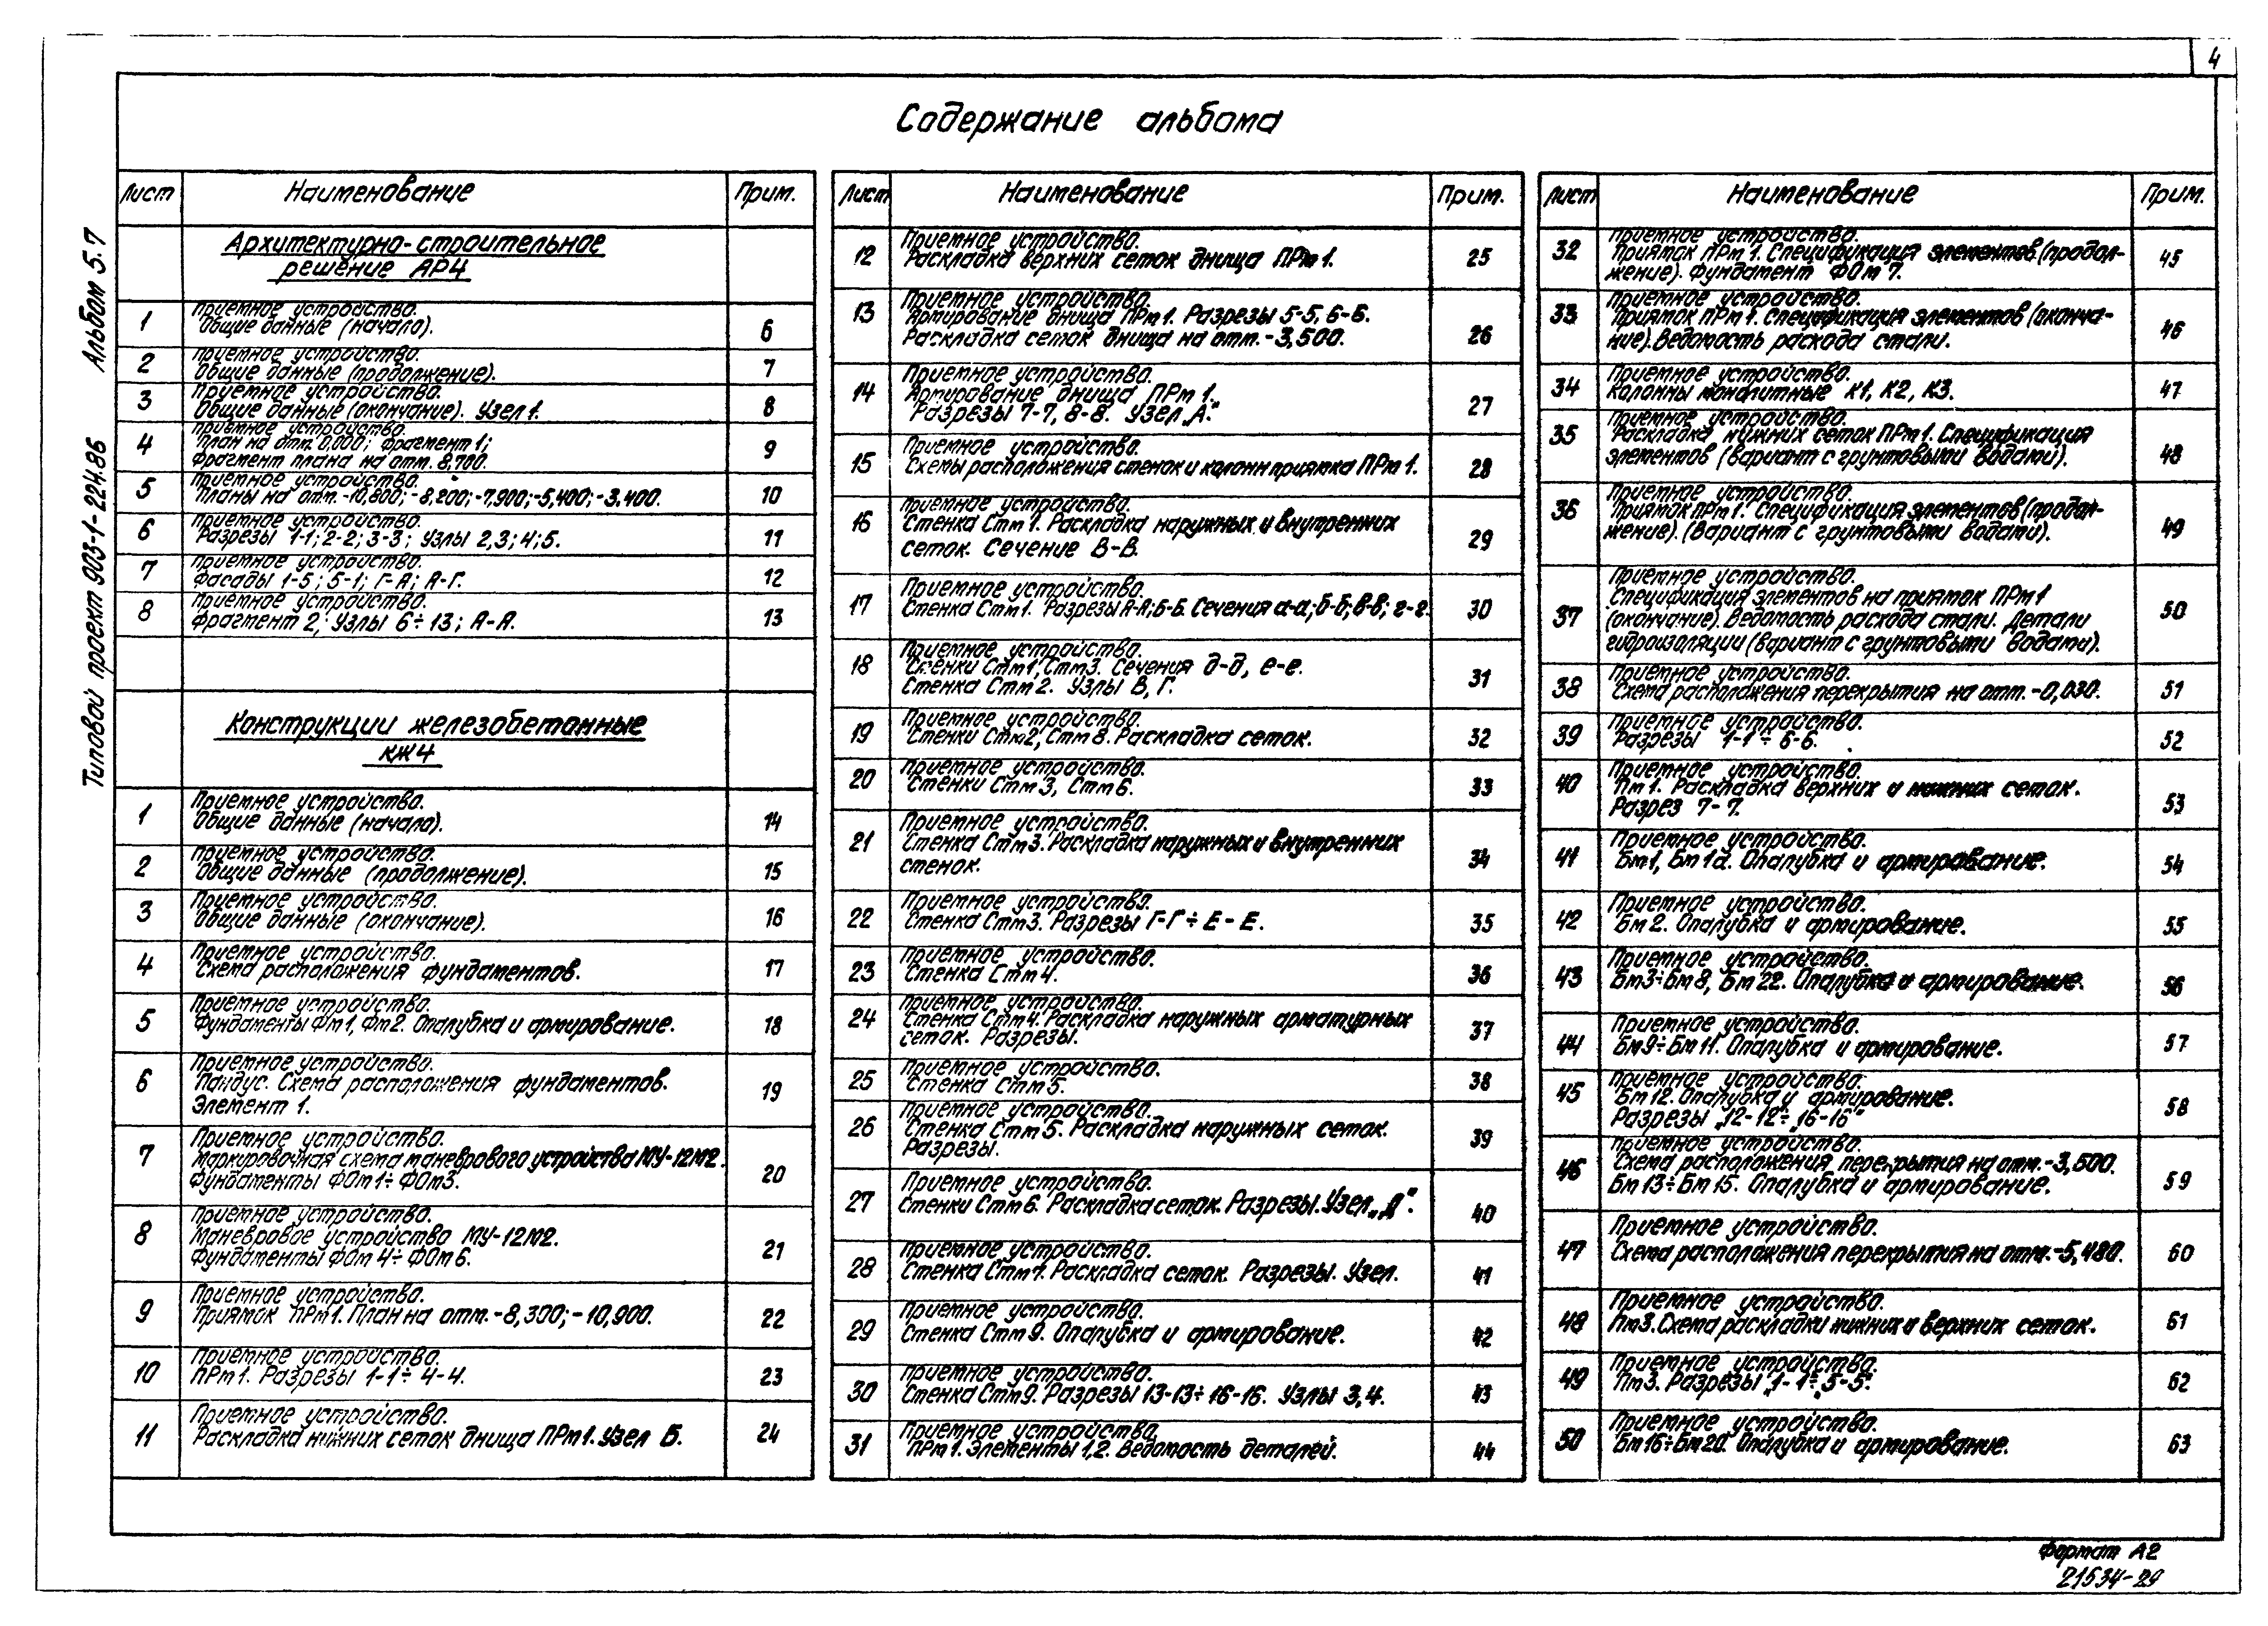 4
Содержание альбома
Типовой проект 903-1-224.86 Альбом 5.7
Лист Наименование Прим.
Архитектурно-строительное
решение АР4
1 Приемное устройство.
Общие данные (начало). 6
2 Приемное устройство.
Общие данные (продолжение). 7
3 Приемное устройство.
Общие данные (окончание). Узел 1. 8
4 Приемное устройство.
План на отм. 0.000; фрагмент 1;
фрагмент плана на отм. 8.700. 9
5 Приемное устройство.
Планы на отм. -10,800; -8,200; -7,900; -5,400; -3,400. 10
6 Приемное устройство.
Разрезы 1-1; 2-2; 3-3; Узлы 2,3; 4; 5. 11
7 Приемное устройство.
Фасады 1-5; 5-1; Г-А; А-Г. 12
8 Приемное устройство.
Фрагмент 2; Узлы 6÷13; А-А. 13
Конструкции железобетонные
КЖ4
1 Приемное устройство.
Общие данные (начало). 14
2 Приемное устройство.
Общие данные (продолжение). 15
3 Приемное устройство.
Общие данные (окончание). 16
4 Приемное устройство.
Схема расположения фундаментов. 17
5 Приемное устройство.
Фундаменты Фм1, Фм2. Опалубка и армирование. 18
6 Приемное устройство.
Пандус. Схема расположения фундаментов.
Элемент 1. 19
7 Приемное устройство.
Маркировочная схема маневрового устройства МУ-12М2.
Фундаменты ФОм1÷ФОм3. 20
8 Приемное устройство.
Маневровое устройство МУ-12М2.
Фундаменты ФОм4÷ФОм6. 21
9 Приемное устройство.
Приямок ПРм1. План на отм. -8,300; -10,900. 22
10 Приемное устройство.
ПРм1. Разрезы 1-1÷4-4. 23
11 Приемное устройство.
Раскладка нижних сеток днища ПРм1. Узел Б. 24
Лист Наименование Прим.
12 Приемное устройство.
Раскладка верхних сеток днища ПРм1. 25
13 Приемное устройство.
Армирование днища ПРм1. Разрезы 5-5, 6-6.
Раскладка сеток днища на отм. -3,500. 26
14 Приемное устройство.
Армирование днища ПРм1.
Разрезы 7-7, 8-8. Узел „А". 27
15 Приемное устройство.
Схемы расположения стенок и колонн приямка ПРм1. 28
16 Приемное устройство.
Стенка Стм1. Раскладка наружных и внутренних
сеток. Сечение В-В. 29
17 Приемное устройство.
Стенка Стм1. Разрезы А-А; Б-Б. Сечения а-а; б-б; в-в; г-г. 30
18 Приемное устройство.
Стенки Стм1, Стм3. Сечения д-д, е-е.
Стенка Стм2. Узлы В, Г. 31
19 Приемное устройство.
Стенки Стм2, Стм8. Раскладка сеток. 32
20 Приемное устройство.
Стенки Стм3, Стм6. 33
21 Приемное устройство.
Стенка Стм3. Раскладка наружных и внутренних
стенок. 34
22 Приемное устройство.
Стенка Стм3. Разрезы Г-Г÷Е-Е. 35
23 Приемное устройство.
Стенка Стм4. 36
24 Приемное устройство.
Стенка Стм4. Раскладка наружных арматурных
сеток. Разрезы. 37
25 Приемное устройство.
Стенка Стм5. 38
26 Приемное устройство.
Стенка Стм5. Раскладка наружных сеток.
Разрезы. 39
27 Приемное устройство.
Стенки Стм6. Раскладка сеток. Разрезы. Узел „Д". 40
28 Приемное устройство.
Стенка Стм7. Раскладка сеток. Разрезы. Узел. 41
29 Приемное устройство.
Стенка Стм9. Опалубка и армирование. 42
30 Приемное устройство.
Стенка Стм9. Разрезы 13-13÷16-16. Узлы 3,4. 43
31 Приемное устройство.
ПРм1. Элементы 1,2. Ведомость деталей. 44
Лист Наименование Прим.
32 Приемное устройство.
Приямок ПРм1. Спецификация элементов (продол-
жение). Фундамент ФОм7. 45
33 Приемное устройство.
Приямок ПРм1. Спецификация элементов (оконча-
ние). Ведомость расхода стали. 46
34 Приемное устройство.
Колонны монолитные К1, К2, К3. 47
35 Приемное устройство.
Раскладка нижних сеток ПРм1. Спецификация
элементов (вариант с грунтовыми водами). 48
36 Приемное устройство.
Приямок ПРм1. Спецификация элементов (продол-
жение). (Вариант с грунтовыми водами). 49
37 Приемное устройство.
Спецификация элементов на приямок ПРм1
(окончание). Ведомость расхода стали. Детали
гидроизоляции (вариант с грунтовыми водами). 50
38 Приемное устройство.
Схема расположения перекрытия на отм. -0,030. 51
39 Приемное устройство.
Разрезы 1-1÷6-6. 52
40 Приемное устройство.
Пм1. Раскладка верхних и нижних сеток.
Разрез 7-7. 53
41 Приемное устройство.
Бм1, Бм1а. Опалубка и армирование. 54
42 Приемное устройство.
Бм2. Опалубка и армирование. 55
43 Приемное устройство.
Бм3÷Бм8, Бм22. Опалубка и армирование. 56
44 Приемное устройство.
Бм9÷Бм11. Опалубка и армирование. 57
45 Приемное устройство.
Бм12. Опалубка и армирование.
Разрезы „12-12÷„16-16" 58
46 Приемное устройство.
Схема расположения перекрытия на отм. -3,500.
Бм13÷Бм15. Опалубка и армирование. 59
47 Приемное устройство.
Схема расположения перекрытия на отм. -5,480. 60
48 Приемное устройство.
Пм3. Схема раскладки нижних и верхних сеток. 61
49 Приемное устройство.
Пм3. Разрезы „1-1÷„5-5". 62
50 Приемное устройство.
Бм16÷Бм20. Опалубка и армирование. 63
Формат А2
21534-29